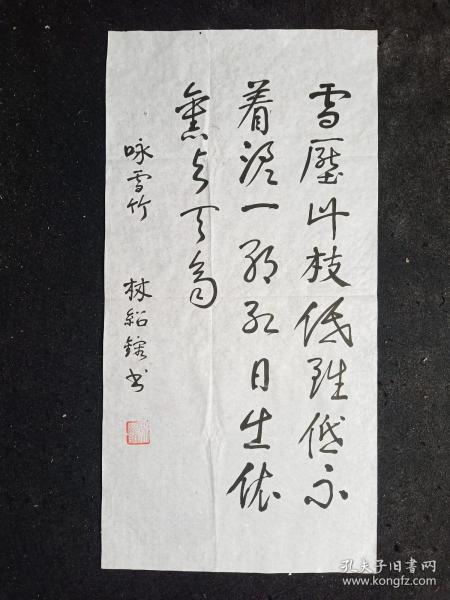 雪壓竹枝低雖低不
着泥一朝紅日生依
舊与天齊
咏雪竹
林紹鎔书
孔夫子旧书网
www.kongfz.com